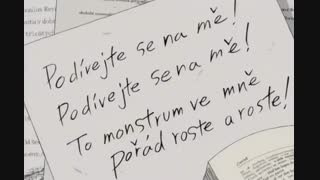 Podívejte se na mě!
Podívejte se na mě!
To monstrum ve mně
pořád roste a roste!